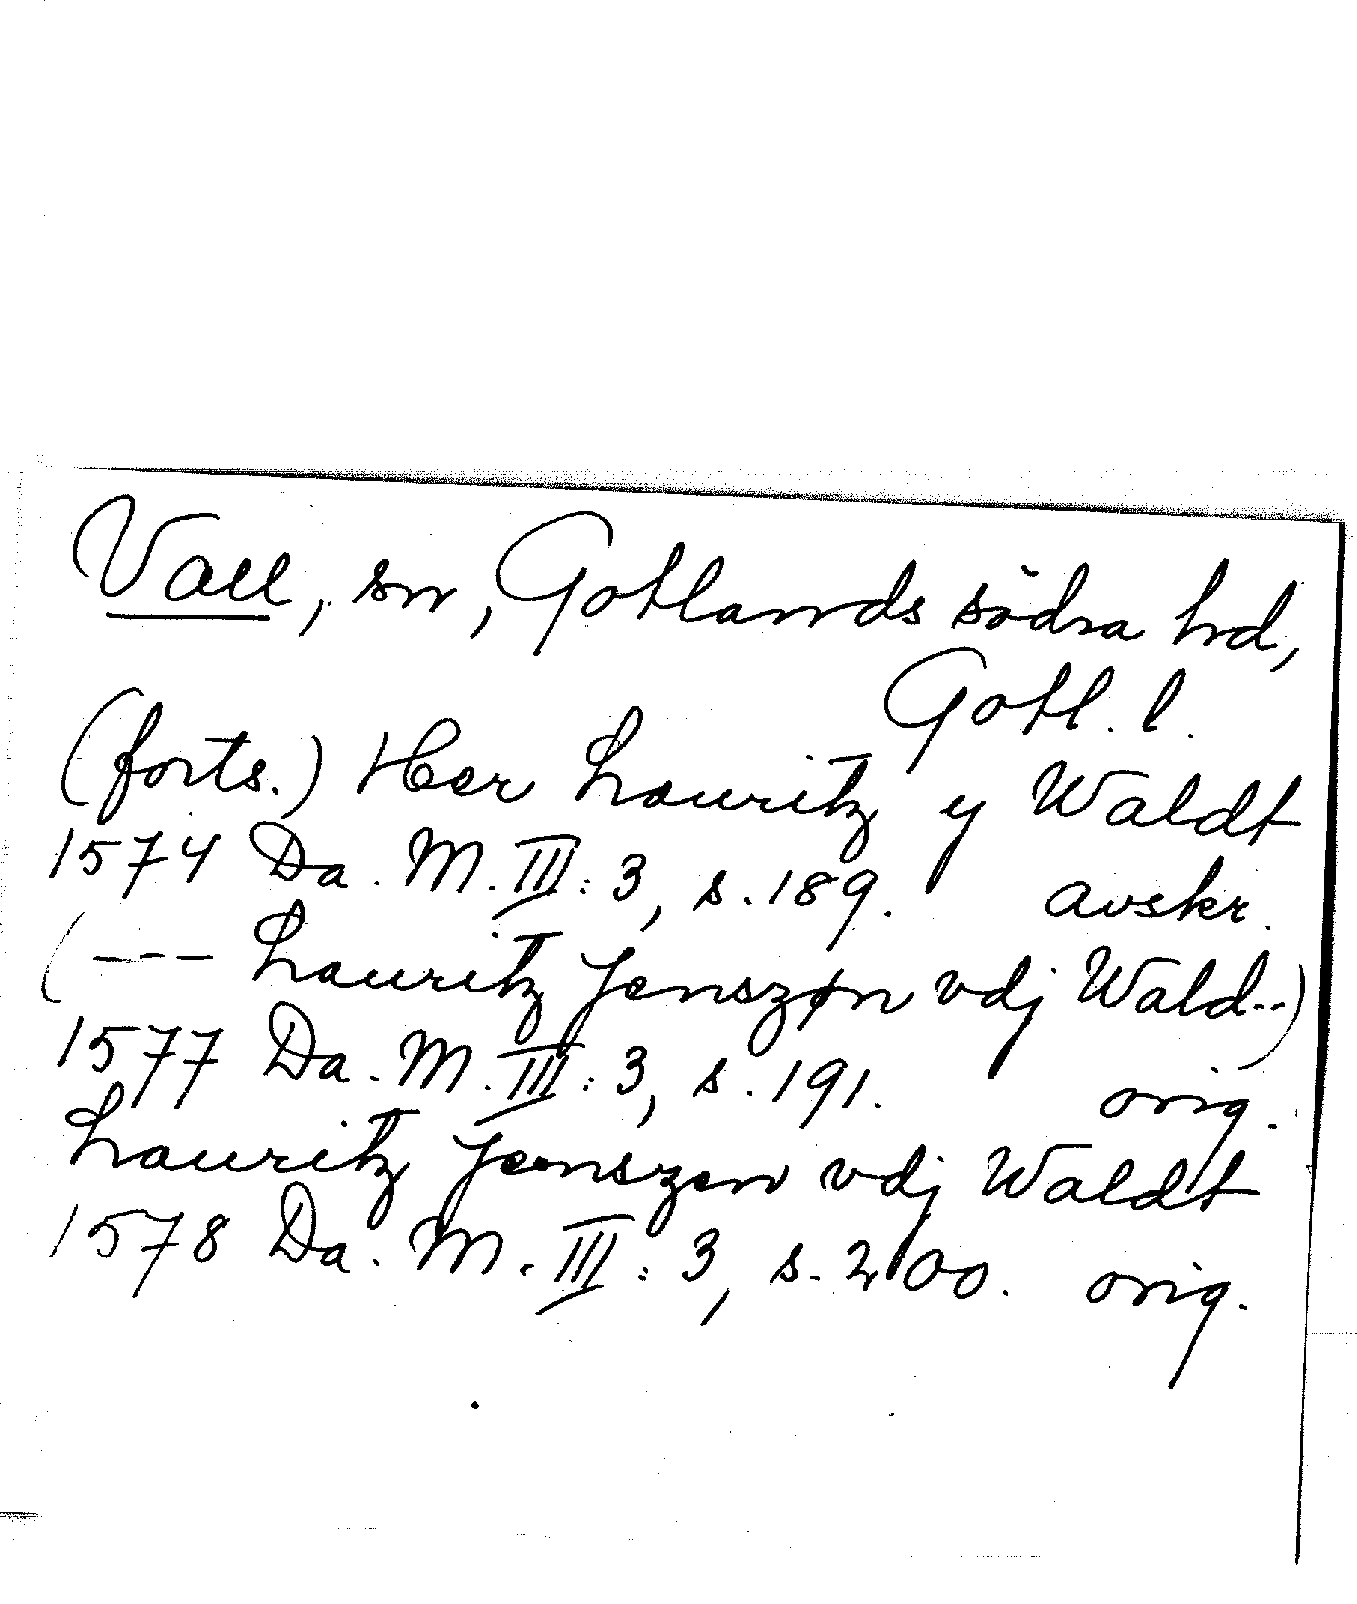 Vall, sn, Gotlands södra hd,
Gotl. l.
(forts.) Her Lauritz y Waldt
1574 Da. M. III: 3, s. 189. avskr.
(--- Lauritz Jenszøn vdj Wald--)
1577 Da. M. III: 3, s. 191. orig.
Lauritz Jenszen vdj Waldt
1578 Da. M. III: 3, s. 200. orig.